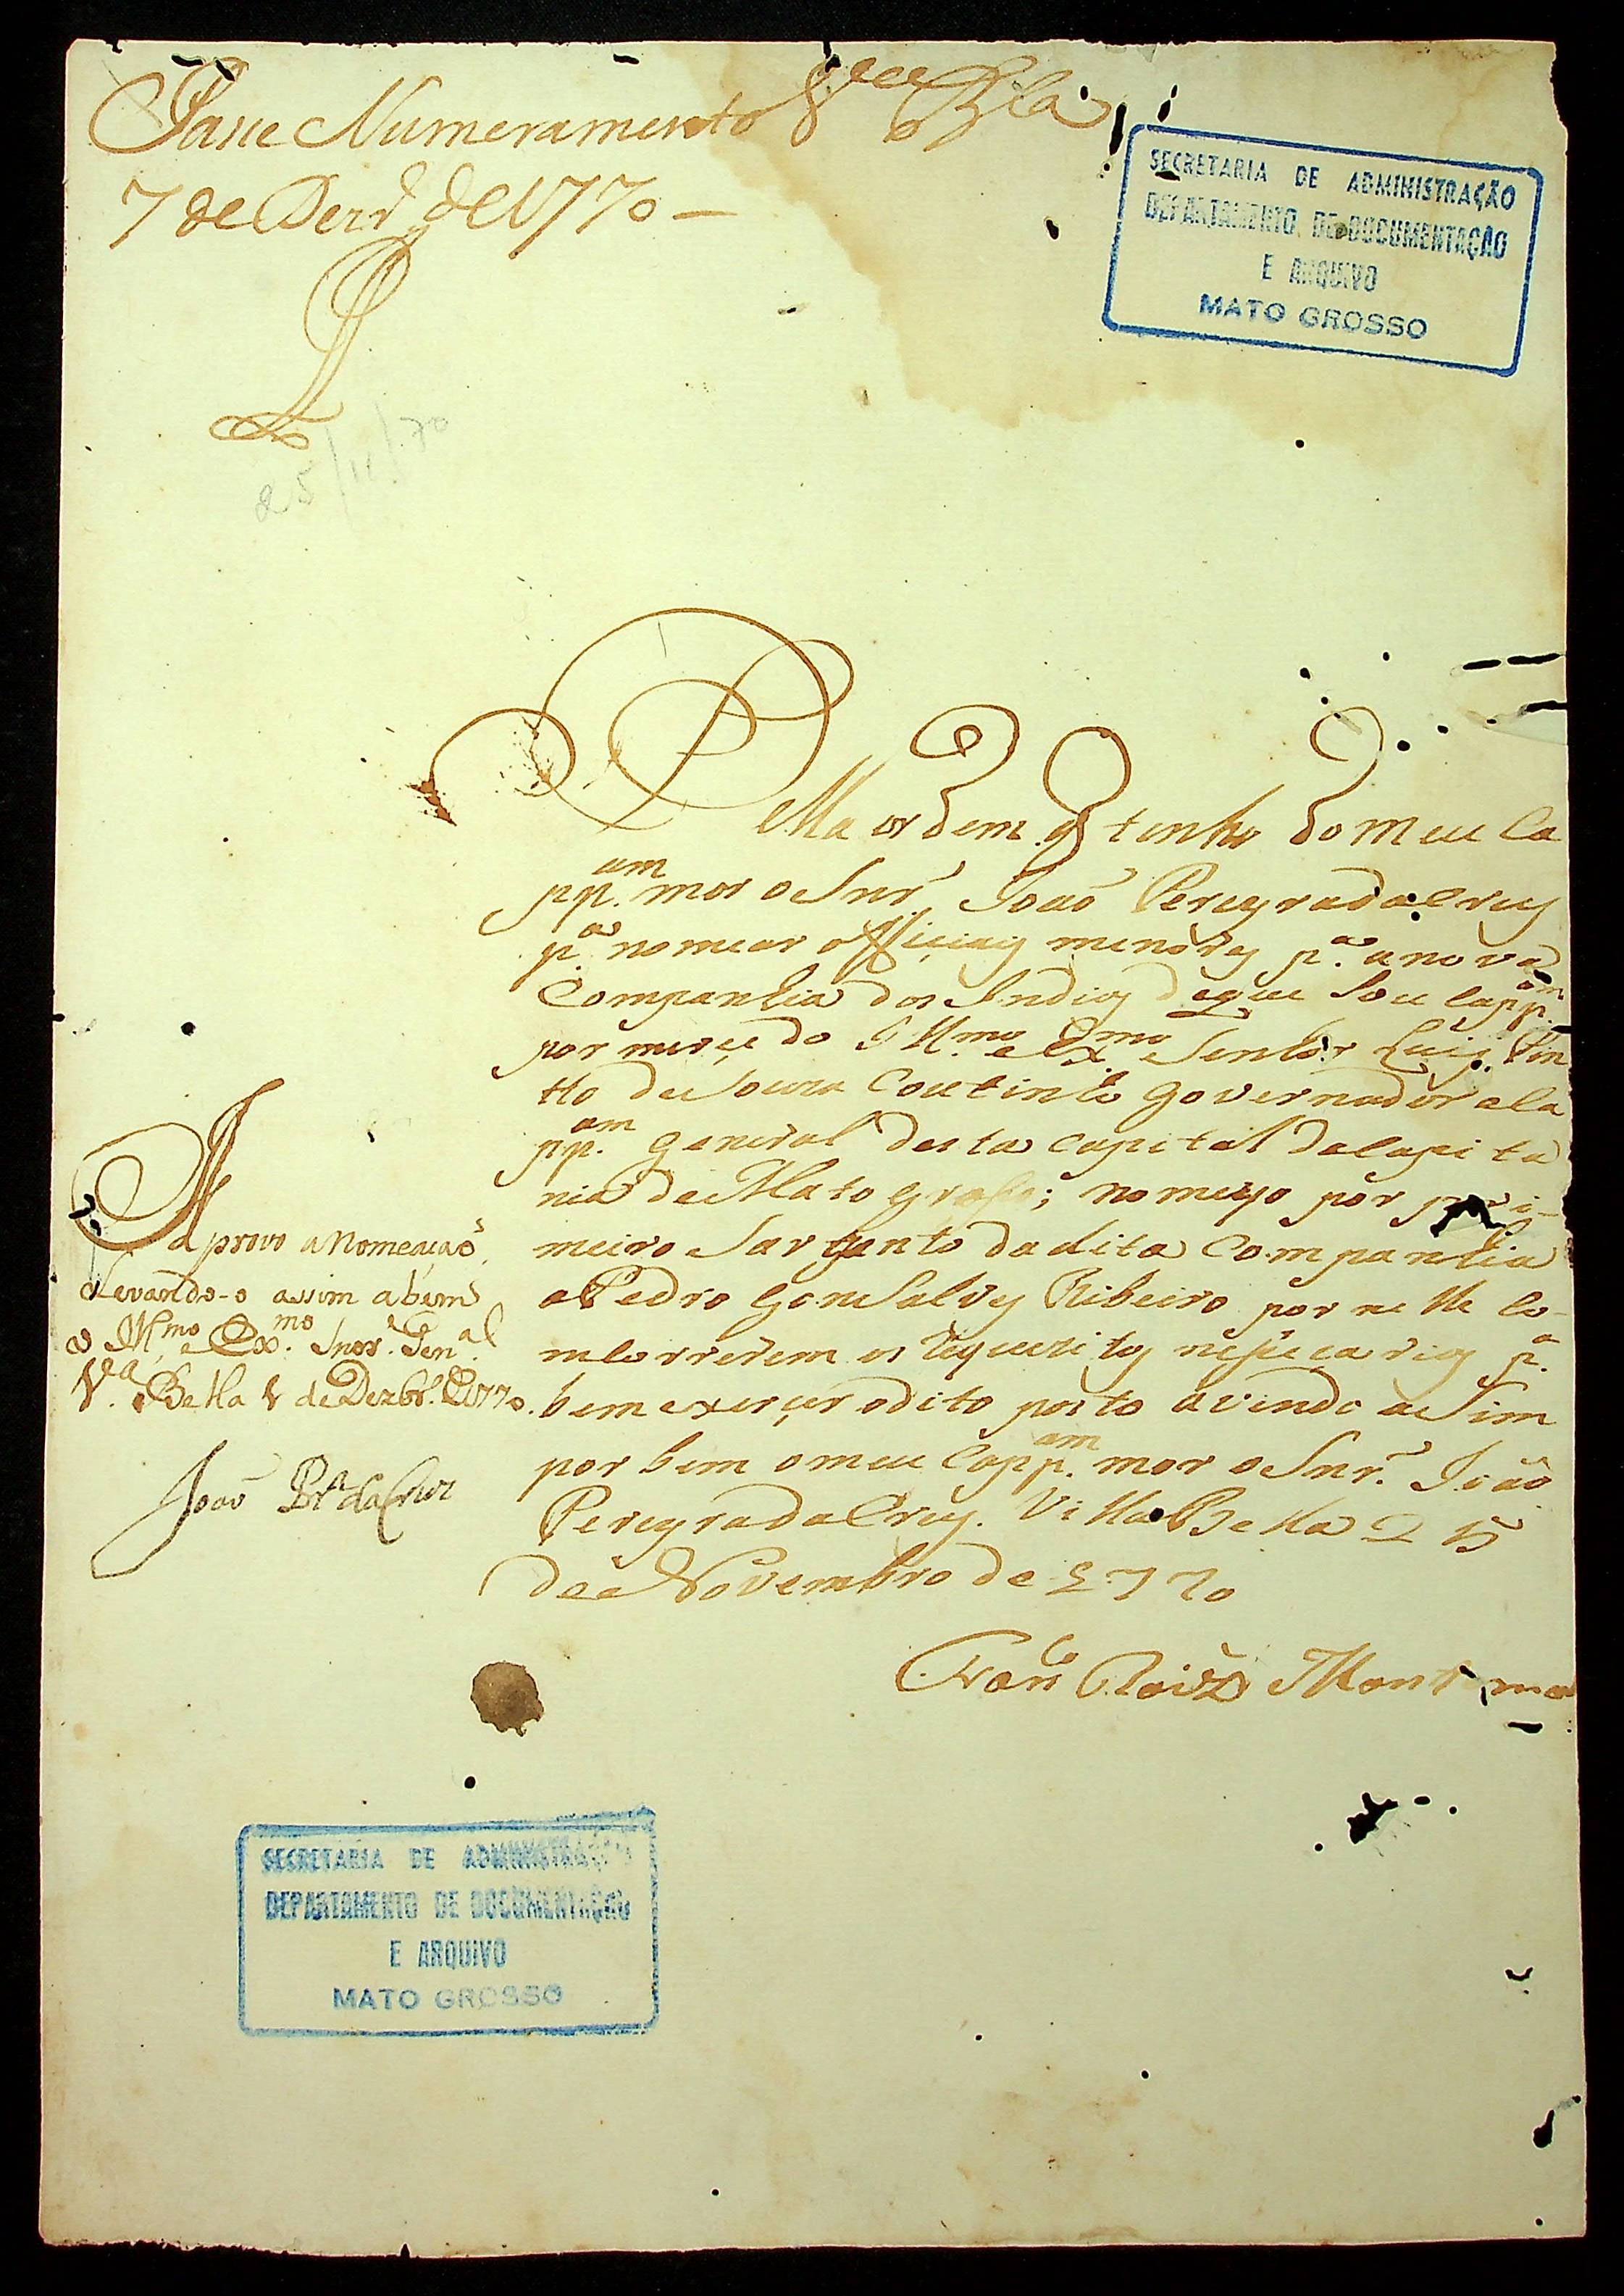 Passe Numeramento V.ª Bella
7 de Dezr.º de 1770
SECRETARIA DE ADMINISTRAÇÃO
DEPARTAMENTO DE DOCUMENTAÇÃO
E ARQUIVO
MATO GROSSO
25/11/70
Pella ordem q tenho do meu Ca
pp.am mor o Snr João Pereyra da Crus
p.a nomear officiais menores p.a a nova
Companhia dos Indios de que sou Capp.am
por merçe do Ill.mo e Ex.mo Senhor Luis Pin
tto de Souza Coutinho Governador e Ca
pp.am General desta Capital da Capita
nia de Mato Grosso; nomeyo por pri-
meiro Sargento da dita Companhia
a Pedro Gonsalves Ribeiro por nelle co-
ncorrerem os requezitos nesseçarios p.a
bem exerçer o dito posto avendo asim
por bem o meu Capp.am mor o Snr. João
Pereyra da Crus. Villa Bella 25
de Novembro de 1770
Fran.co Roiz Mont
Aprovo a Nomeação,
levando-o assim a bem
o Ill.mo e Ex.mo Snor. Gen.al
V.a Bella 1 de Dezbr.o 1770.
João Pr.a da Cruz
SECRETARIA DE ADMINISTRAÇÃO
DEPARTAMENTO DE DOCUMENTAÇÃO
E ARQUIVO
MATO GROSSO